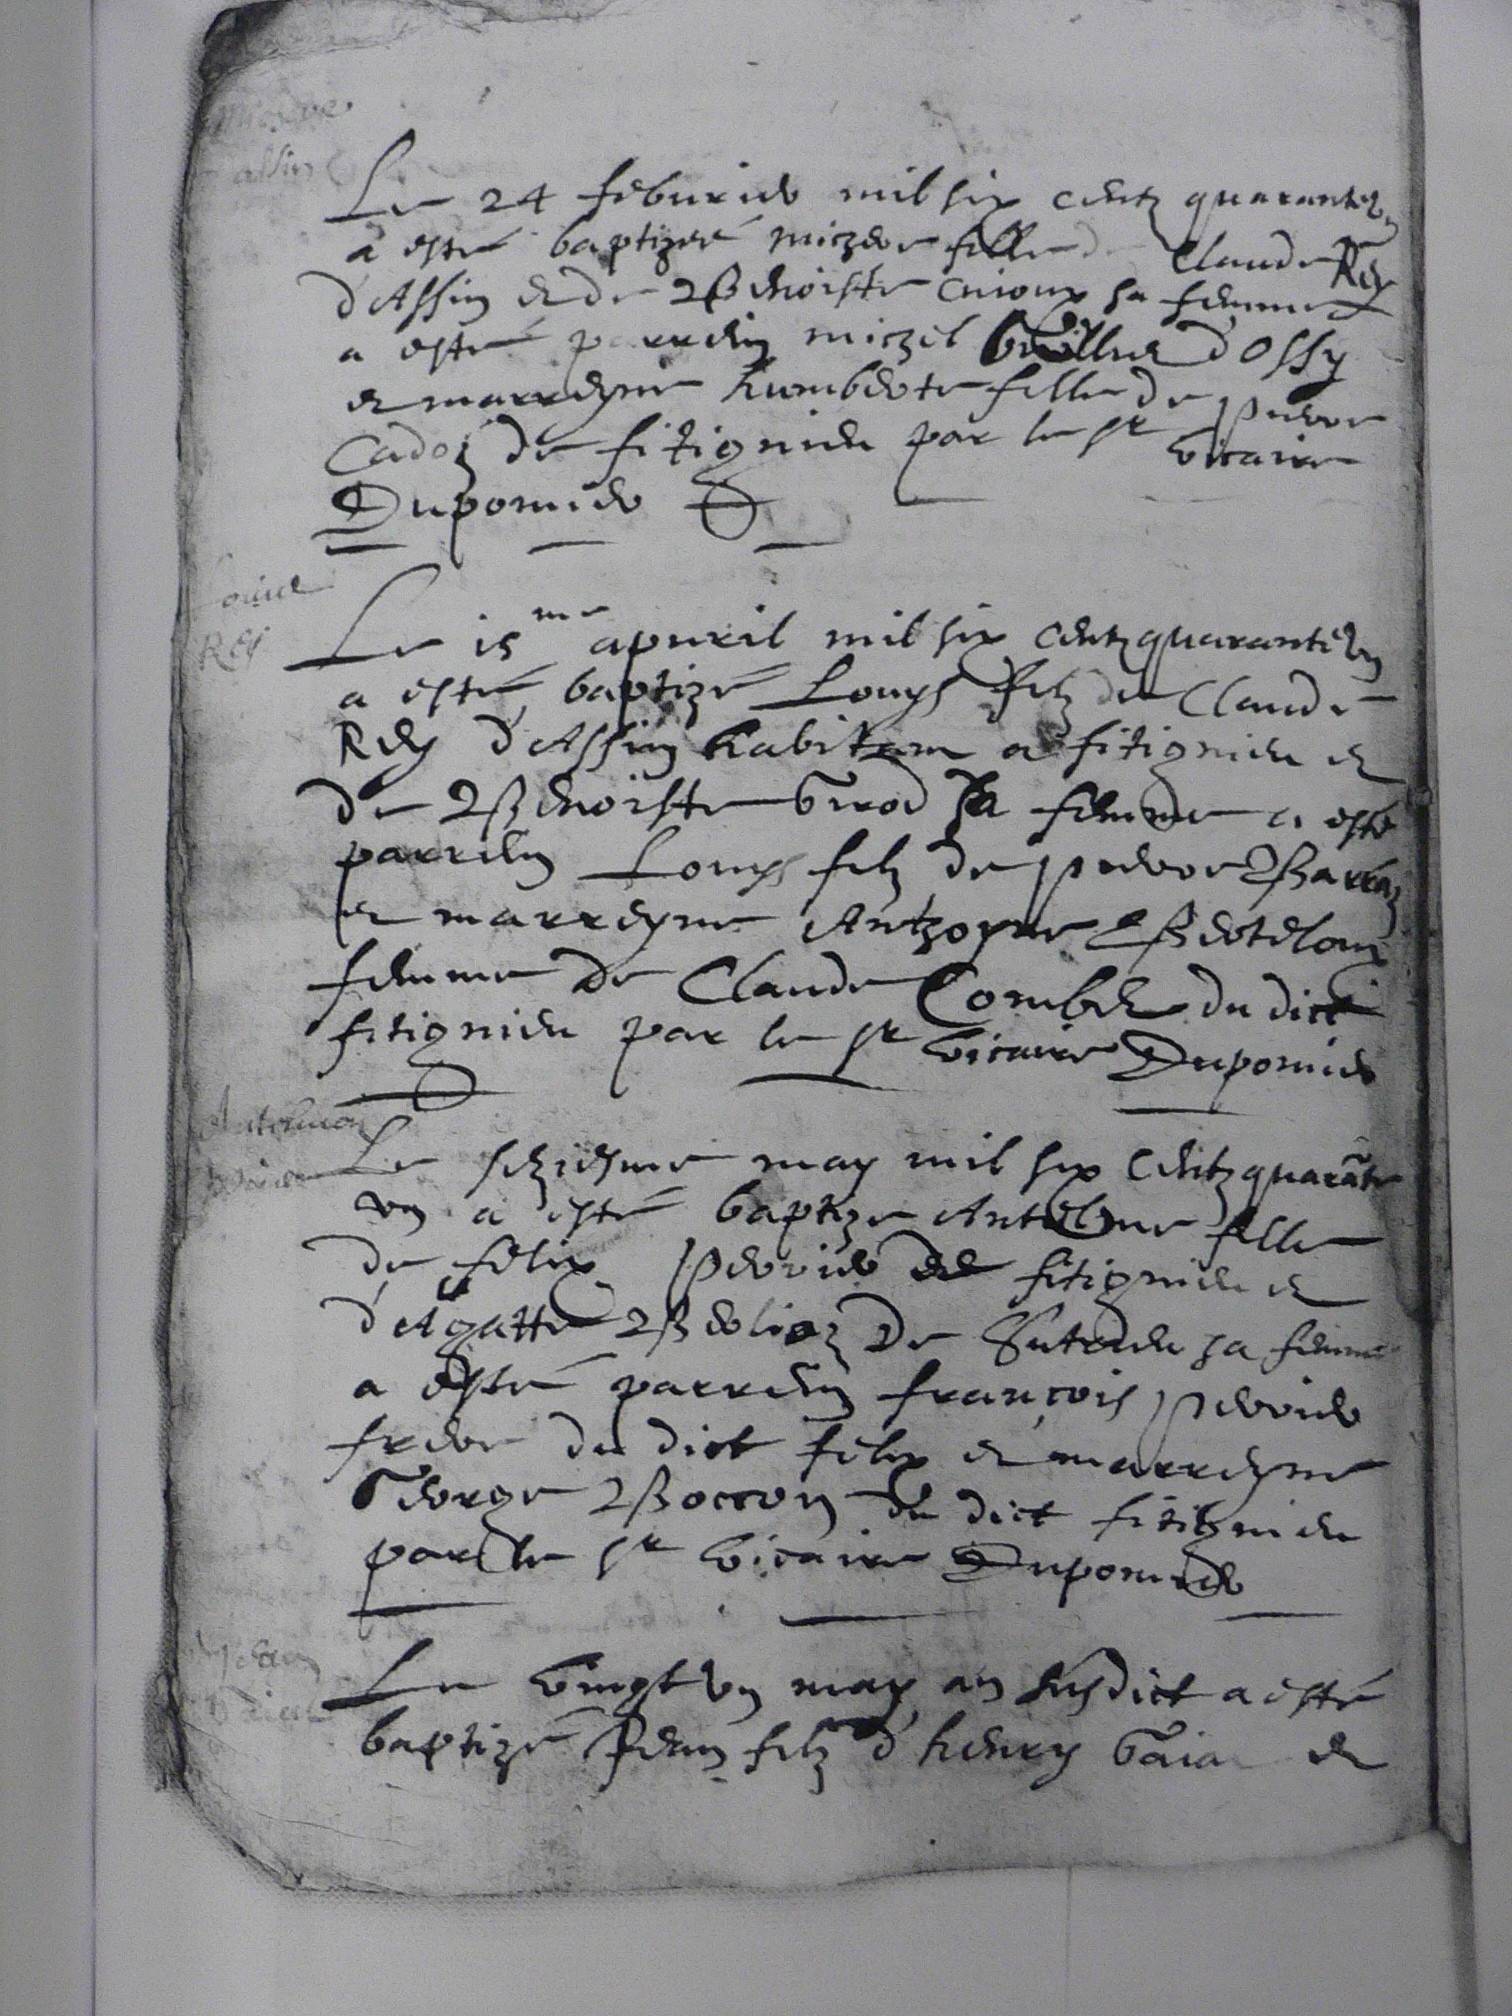 assin
Le 24 feburier mil six centz quarante un
a esté baptizeé miczere fille de Claude Rey
d'Assin et de Benoiste sa femme
a esté parrein miczel d'Ossy
et marreyne humberte fille de pierre
Cadoz de fitignieu par le sr vicaire
Duponier
Louise
Rey
Le 15me apvril mil six centz quarante un
a esté baptizé Louys filz de Claude
Rey d'Assin habitam a fitignieu et
de Benoiste Grod sa femme a esté
parrein Louys filz de pierre Barraz
et marreyne Antzoyne
femme de Claude Combet du dict
fitignieu par le sr vicaire Duponier
Le seziesme may mil six centz quarãte
un a esté baptize Antelme fille
de felix Perrier de fitignieu et
d'Agatte Berlioz de Sutrieu sa femme
a esté parrein françois perrier
frere du dict felix et marreyne
George Boccon du dict fitignieu
par le sr vicaire Duponier
Jean
Le vingt un may an susdict a esté
baptizé Jean filz d'henry et